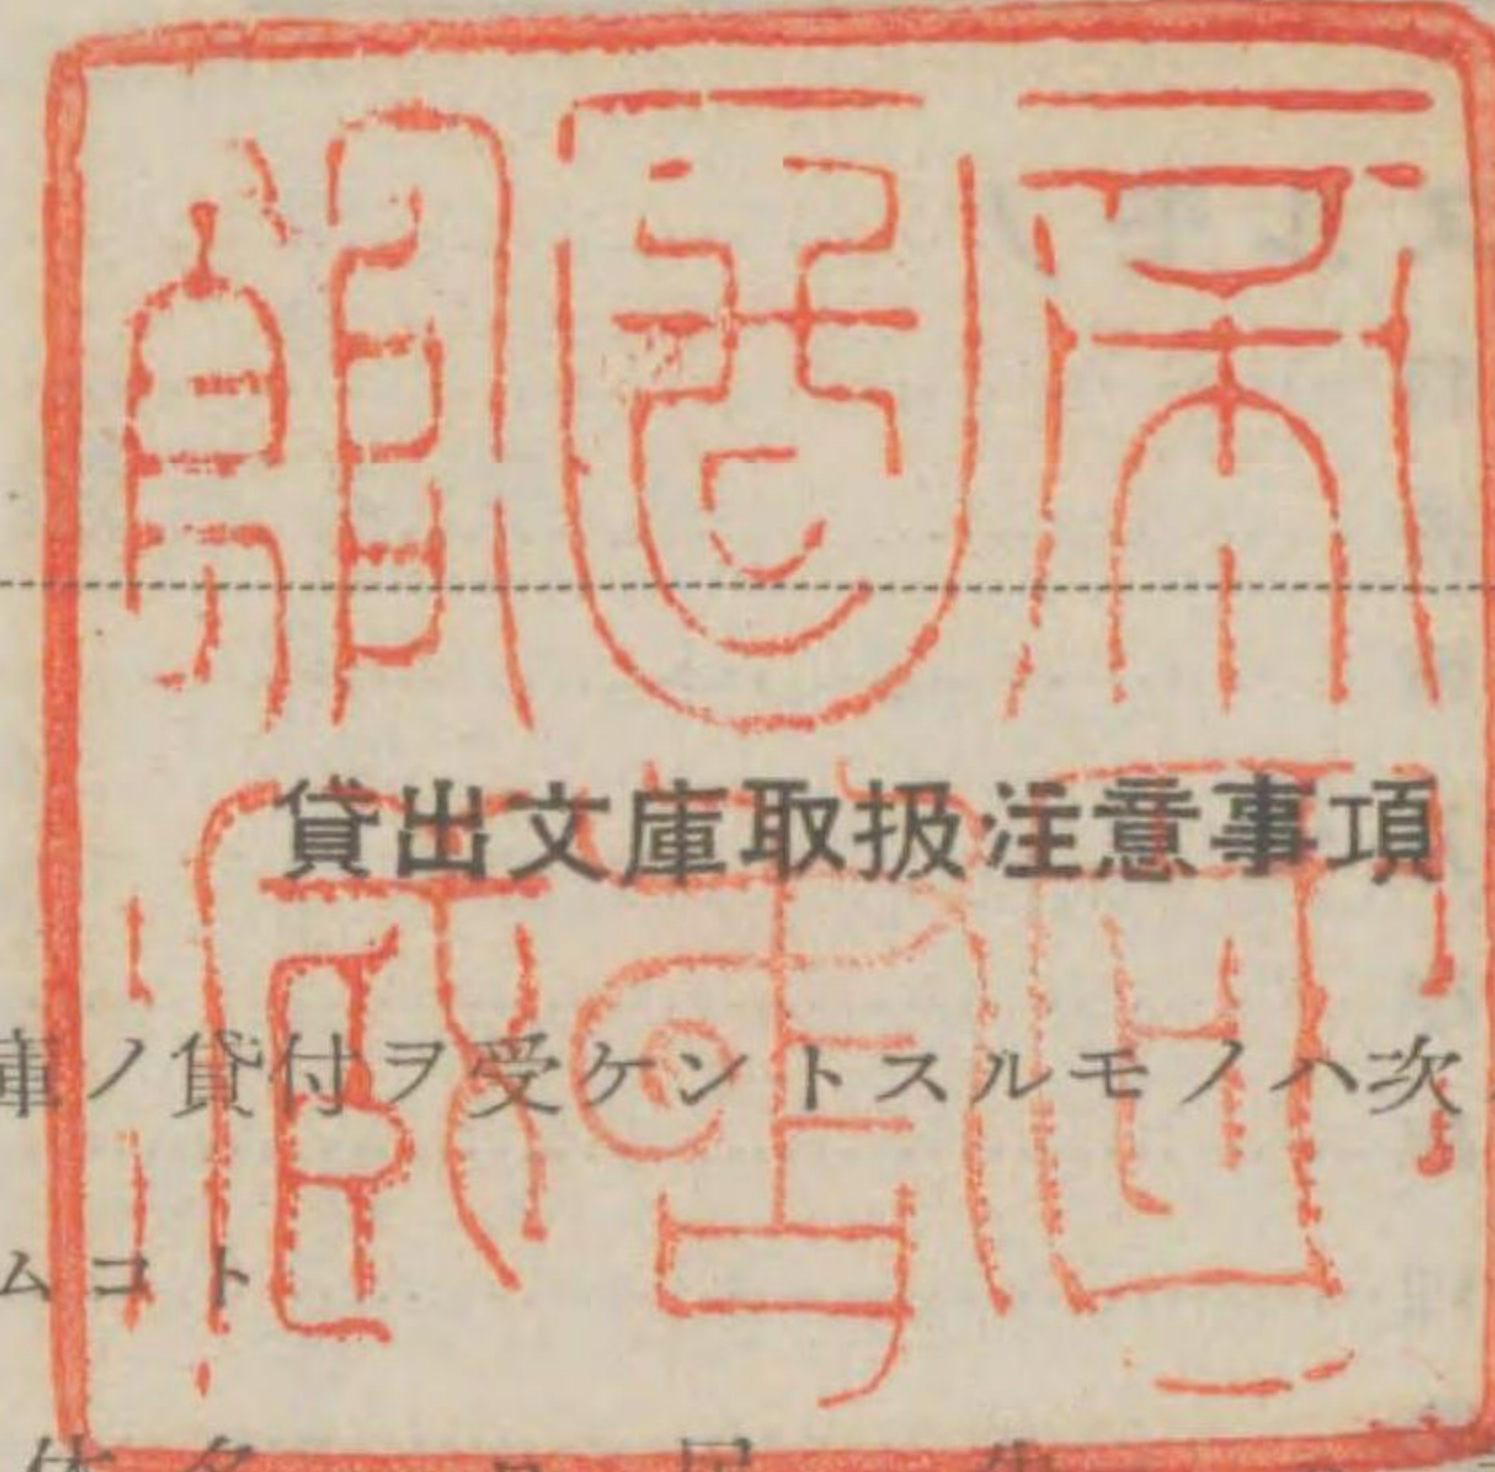 帝國圖書館藏
貸出文庫取扱注意事項
庫ノ貸付ヲ受ケントスルモノハ次
ムコト